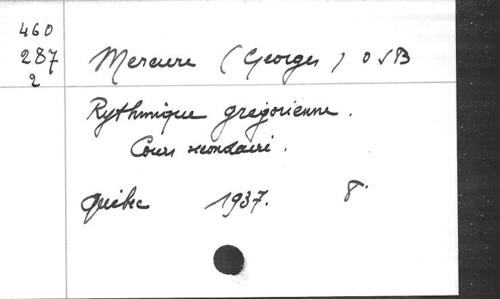 460
287
2
Mercure (Georges) OSB
Rythmique grégorienne.
Cours secondaire.
Québec 1937. 8°